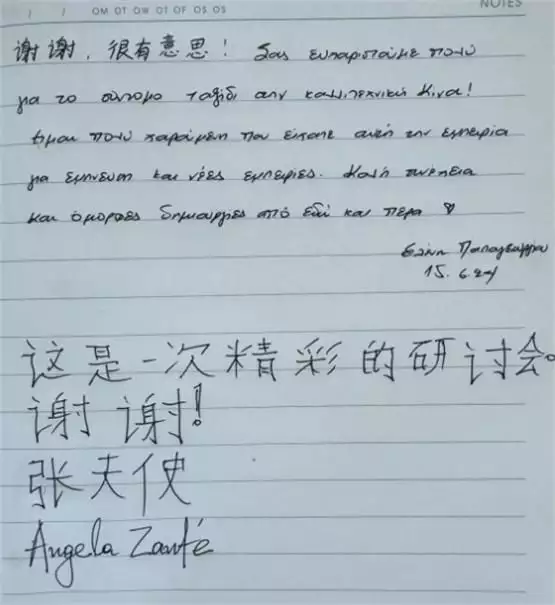 OM OT OW OT OF OS OS
NOTES
谢谢,很有意思! Σας ευχαριστούμε πολύ
για το σύντομο ταξίδι στην καλλιτεχνική Κίνα!
Είμαι πολύ χαρούμενη που είχαμε αυτή την εμπειρία
για έμπνευση και νέες εμπειρίες. Καλή συνέχεια
και όμορφες δημιουργίες από εδώ και πέρα ♡
Παπαγεωργίου
15.6.24
这是一次精彩的研讨会。
谢谢!
张天使
Angela Zanté